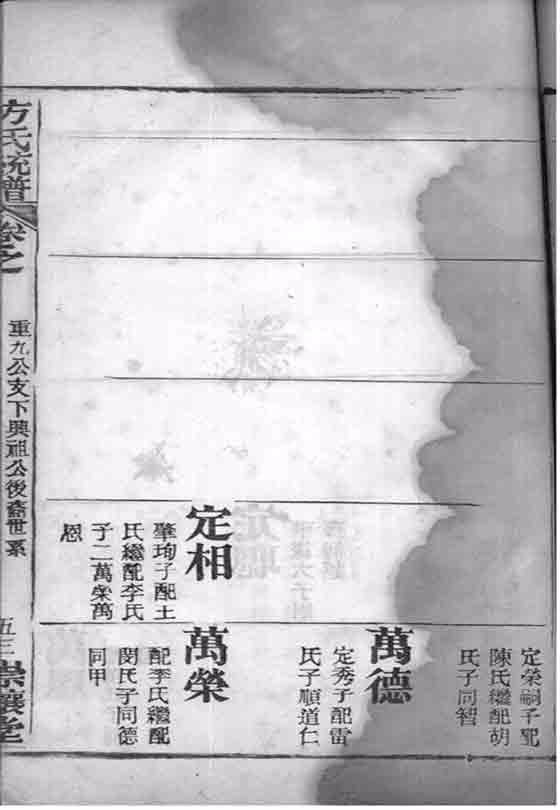 定榮嗣子配
陳氏繼配胡
氏子同智
萬德
定秀子配雷
氏子順道仁
定相
肇珣子配王
氏繼配李氏
子二萬榮萬
恩
萬榮
配李氏繼配
閔氏子同德
同甲
方氏統譜
卷之
重九公支下興祖公後裔世系
五三
崇讓堂